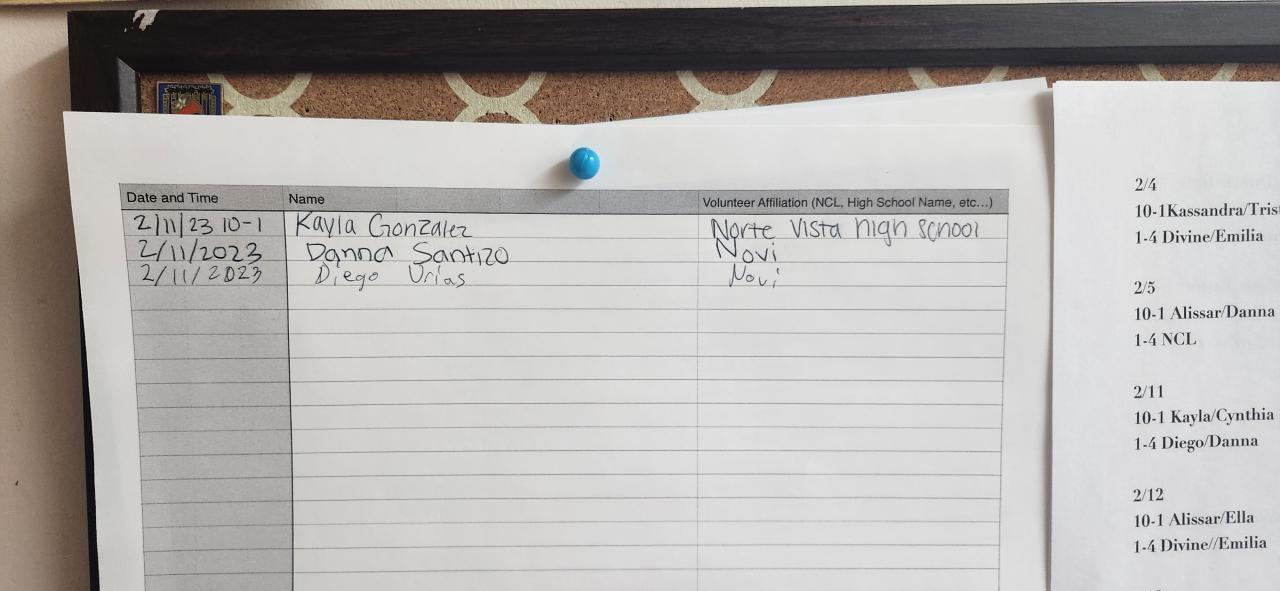 Date and Time Name Volunteer Affiliation (NCL, High School Name, etc...)
2/11/23 10-1 Kayla Gonzalez Norte Vista high school
2/11/2023 Danna Santizo Novi
2/11/2023 Diego Urias Novi
2/4
10-1Kassandra/Tris
1-4 Divine/Emilia
2/5
10-1 Alissar/Danna
1-4 NCL
2/11
10-1 Kayla/Cynthia
1-4 Diego/Danna
2/12
10-1 Alissar/Ella
1-4 Divine//Emilia